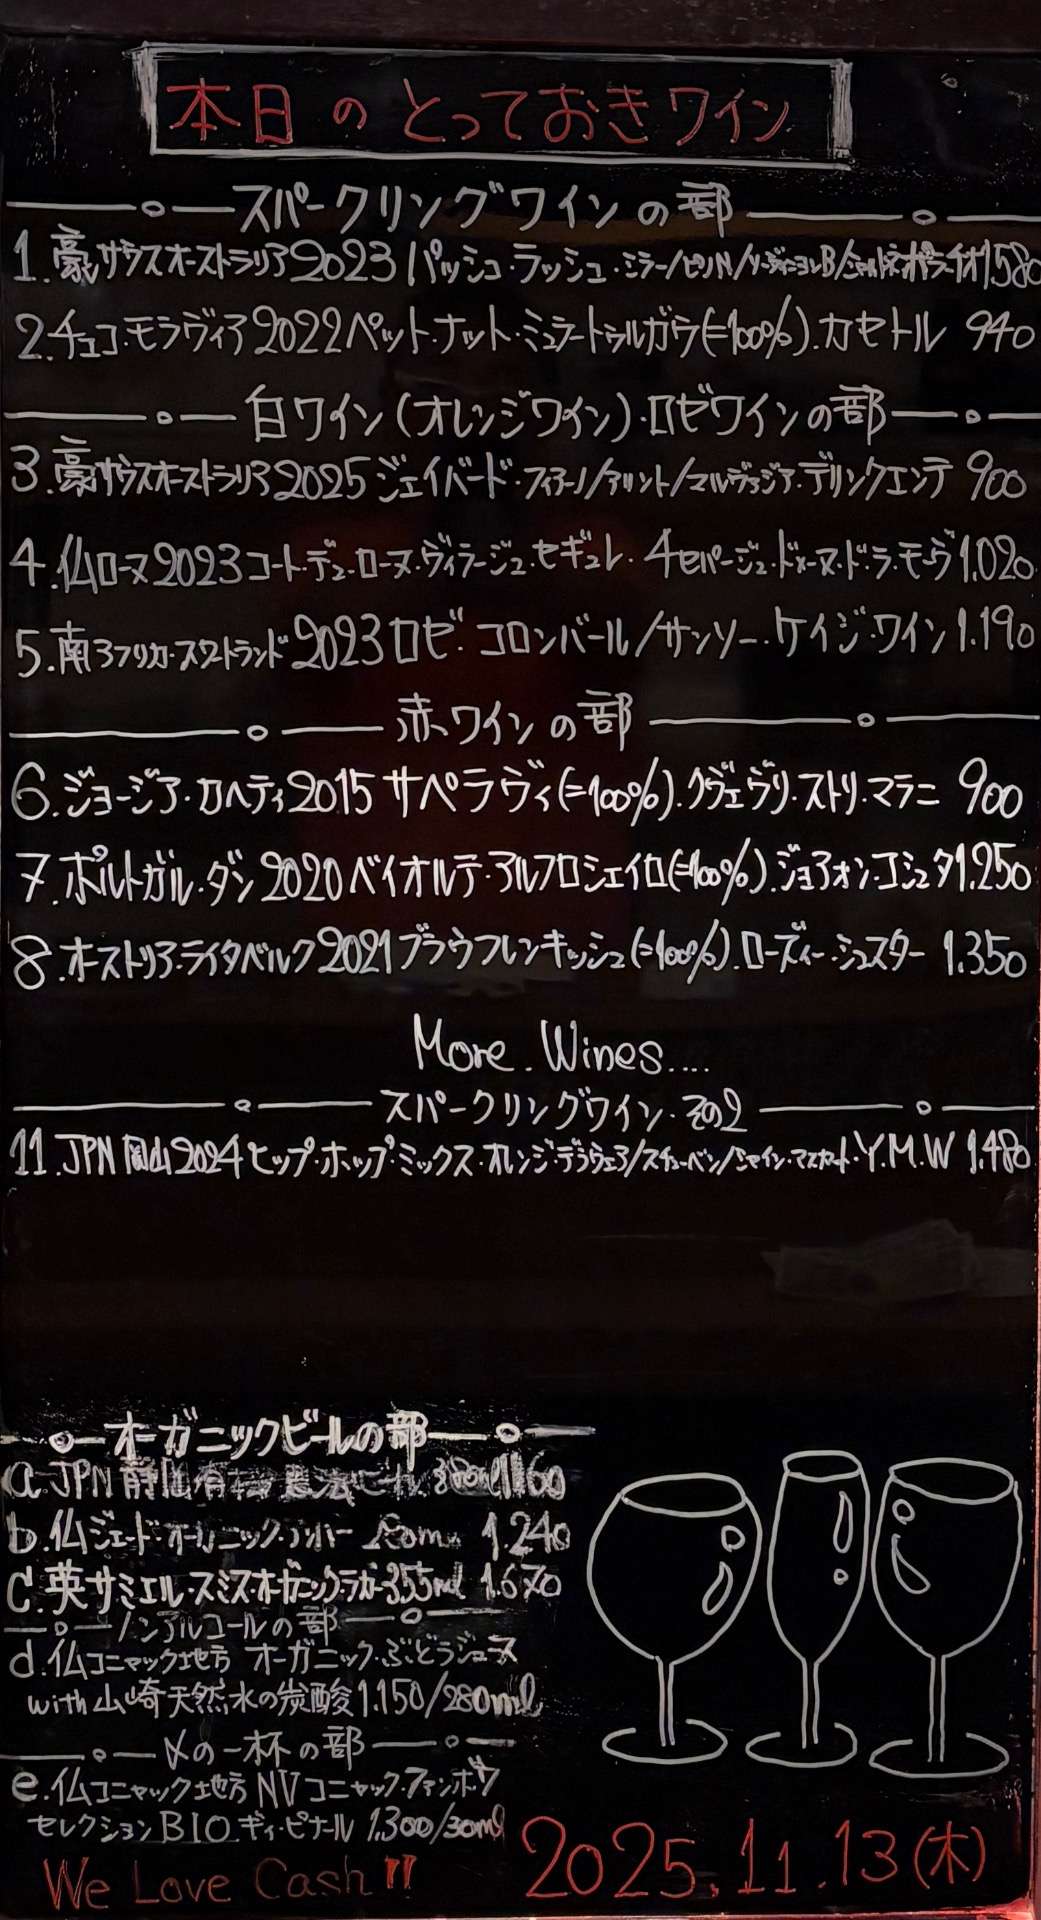 本日のとっておきワイン
スパークリングワインの部
1.豪サウスオーストラリア2023パッシュ・ラッシュ・ミラー/ピノN/ソーヴィニヨンB/シャルドネ 1,580
2.チェコ・モラヴィア2022ペット・ナット・ミュラートゥルガウ(=100%).カセトル 940
白ワイン(オレンジワイン)・ロゼワインの部
3.豪サウスオーストラリア2025ジェイバード・フィアーノ/アリント/マルヴァジア・デリンクエンテ 900
4.仏ローヌ2023コート・デュ・ローヌ・ヴィラージュ・セギュレ・4セパージュ・ドメーヌ・ド・ラ・モーヴ1.020
5.南アフリカ・スワートランド2023ロゼ・コロンバール/サンソー・ケイジ・ワイン1.190
赤ワインの部
6.ジョージア・カヘティ2015サペラヴィ(=100%).クヴェヴリ・ストリ・マラニ 900
7.ポルトガル・ダン2020ベイオルテ・アルフロシェイロ(=100%).ジョアォン・コシュタ1.250
8.オーストリア・ライタベルク2021ブラウフレンキッシュ(=100%).ローズィー・シュスター 1.350
More.Wines....
スパークリングワイン・その2
11.JPN岡山2024ヒップ・ホップ・ミックス・オレンジ・デラウェア/スチューベン/シャイン・マスカット・Y.M.W 1.480
オーガニックビールの部
a.JPN静岡有 1160
b.仏ジェード・オーガニック 1.240
c.英サミエル・スミスオーガニックラガー355ml 1.670
ノンアルコールの部
d.仏コニャック地方 オーガニック・ぶどうジュース
with山崎天然水の炭酸1.150/280ml
〆の一杯の部
e.仏コニャック地方NVコニャック・ファンボワ
セレクションBIO.ギィ・ピナール 1.300/30ml
We Love Cash!!
2025.11.13(木)